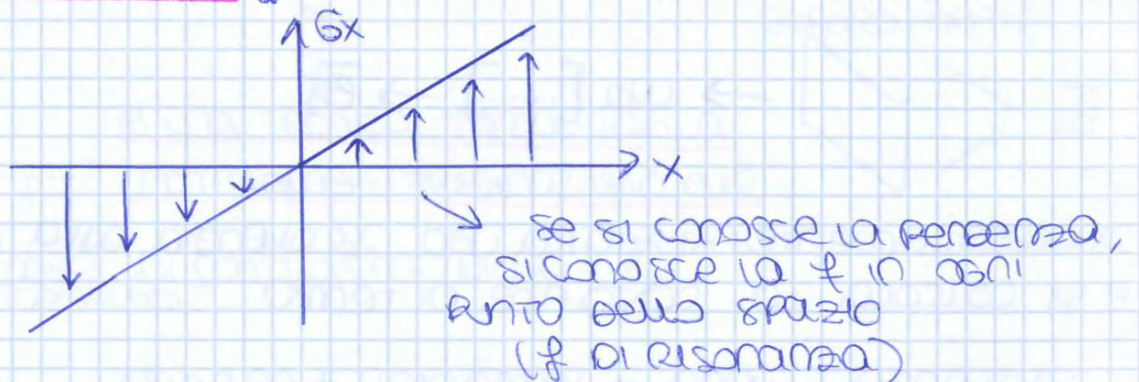 Gx
x
se si conosce la pendenza,
si conosce la f in ogni
punto dello spazio
(f di risonanza)